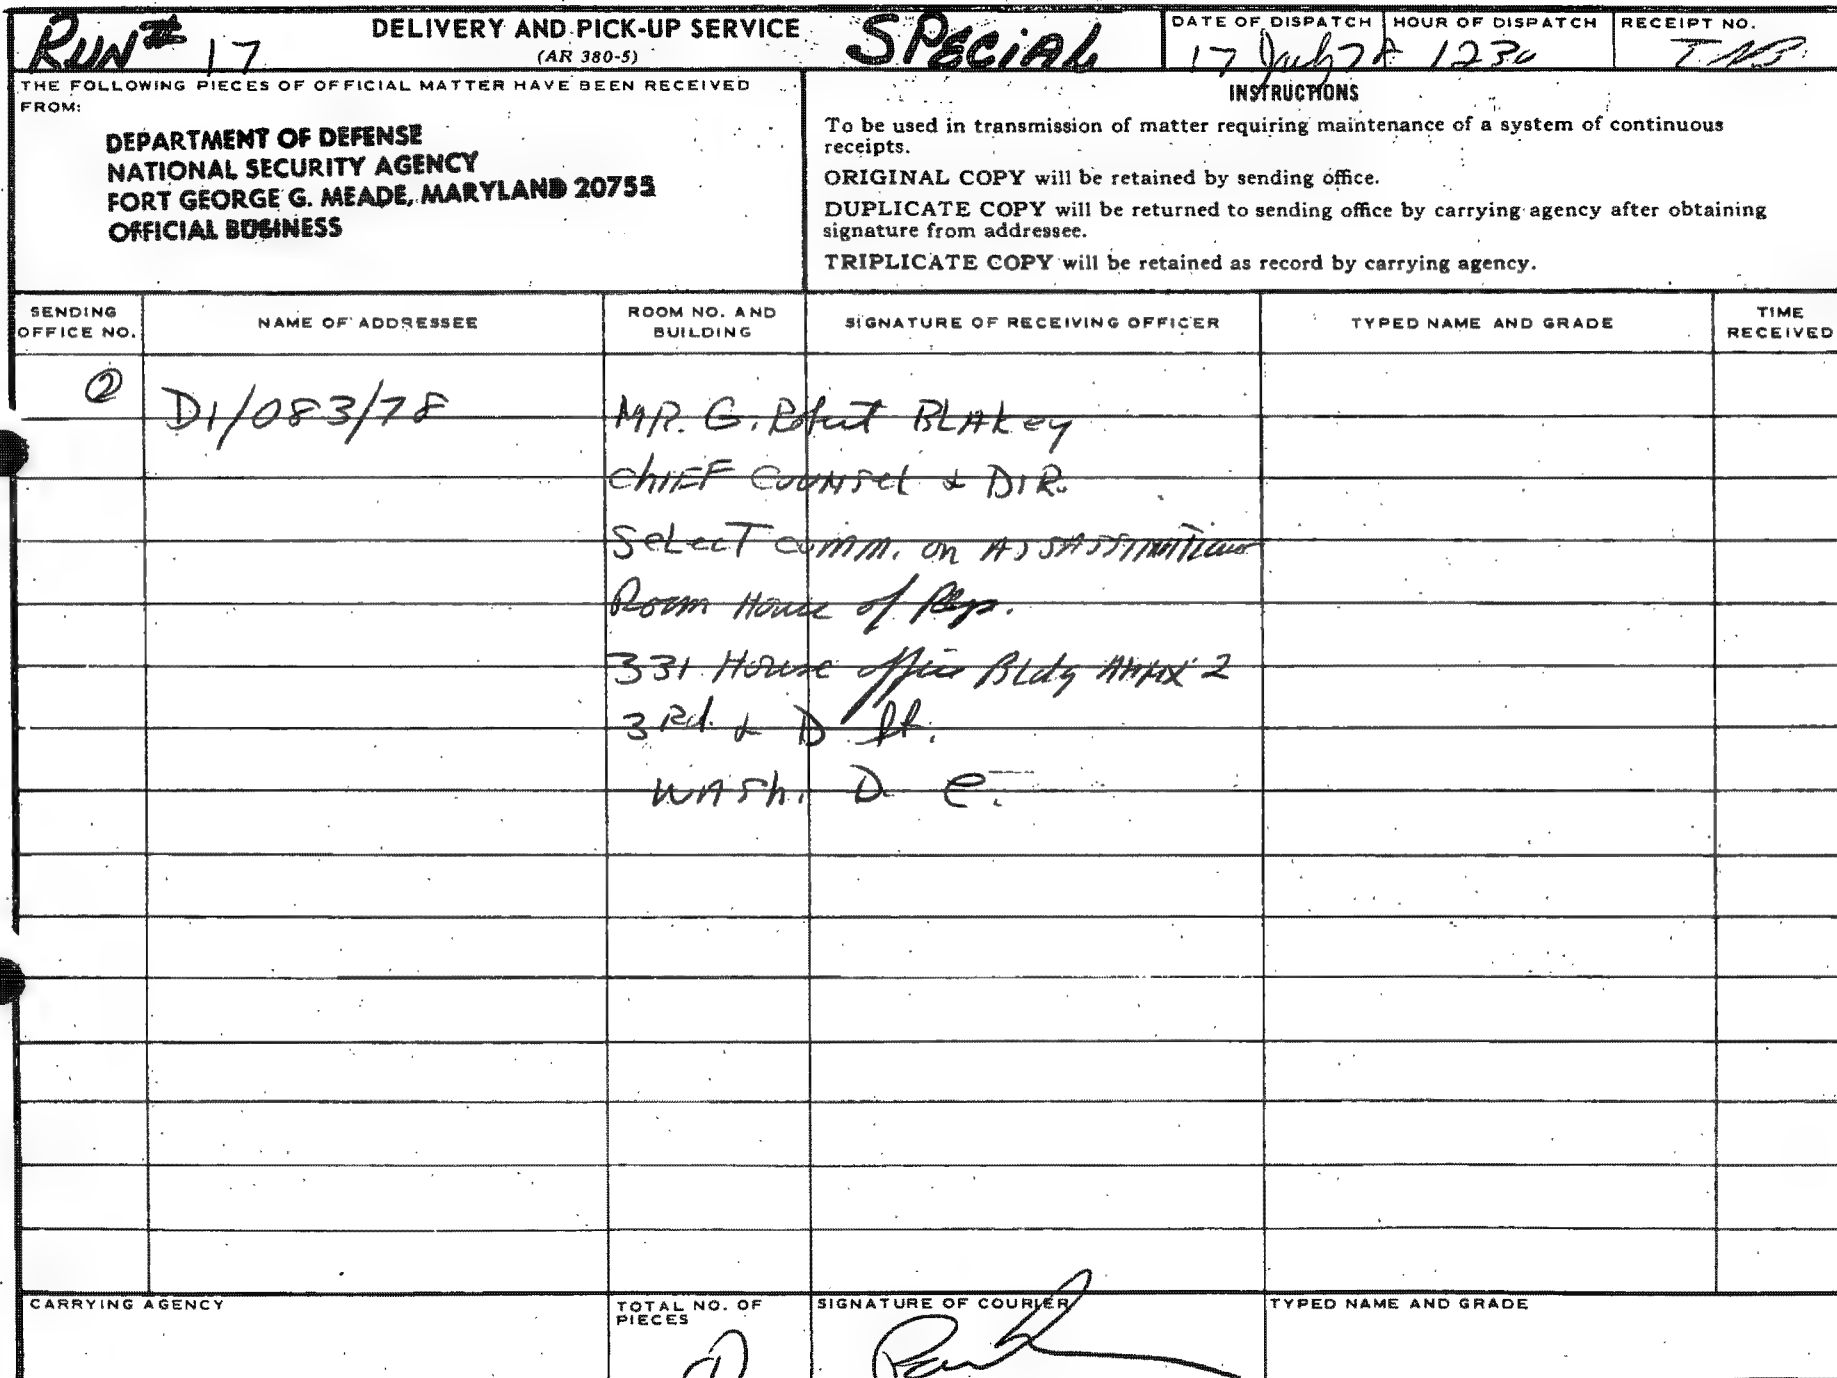 RUN# 17
DELIVERY AND PICK-UP SERVICE
(AR 380-5)
SPECIAL
DATE OF DISPATCH
17 July 78
HOUR OF DISPATCH
1230
RECEIPT NO.
THE FOLLOWING PIECES OF OFFICIAL MATTER HAVE BEEN RECEIVED
FROM:
DEPARTMENT OF DEFENSE
NATIONAL SECURITY AGENCY
FORT GEORGE G. MEADE, MARYLAND 20755
OFFICIAL BUSINESS
INSTRUCTIONS
To be used in transmission of matter requiring maintenance of a system of continuous
receipts.
ORIGINAL COPY will be retained by sending office.
DUPLICATE COPY will be returned to sending office by carrying agency after obtaining
signature from addressee.
TRIPLICATE COPY will be retained as record by carrying agency.
SENDING
OFFICE NO.
NAME OF ADDRESSEE
ROOM NO. AND
BUILDING
SIGNATURE OF RECEIVING OFFICER
TYPED NAME AND GRADE
TIME
RECEIVED
2 D1/083/78 MR. G. Robert BLAKey
ChIEF Counsel & DIR.
SeLecT comm. on ASSASSINATIONS
Room House of Reps.
331 House office BLdg ANNX 2
3Rd. & D St.
WASh. D. C.
CARRYING AGENCY
TOTAL NO. OF
PIECES
SIGNATURE OF COURIER
TYPED NAME AND GRADE